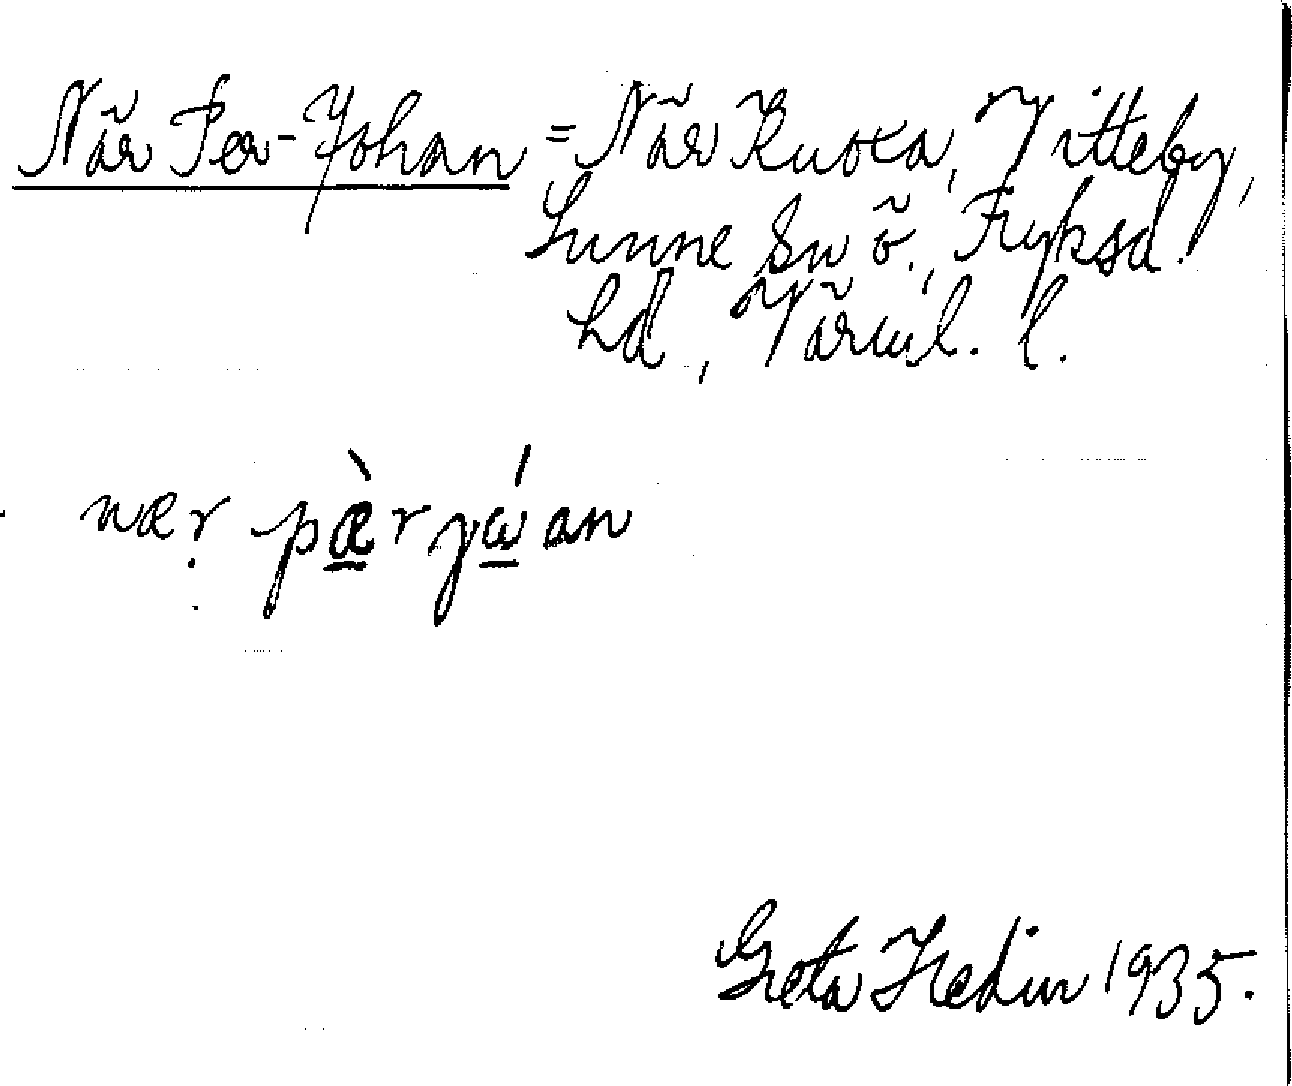 När Per-Johan = När Kusta, Vitteby,
Sunne sn ö., Fryksd.
hd, Värml. l.
næṛ pæ̀r jɷ́an
Greta Hedin 1935.